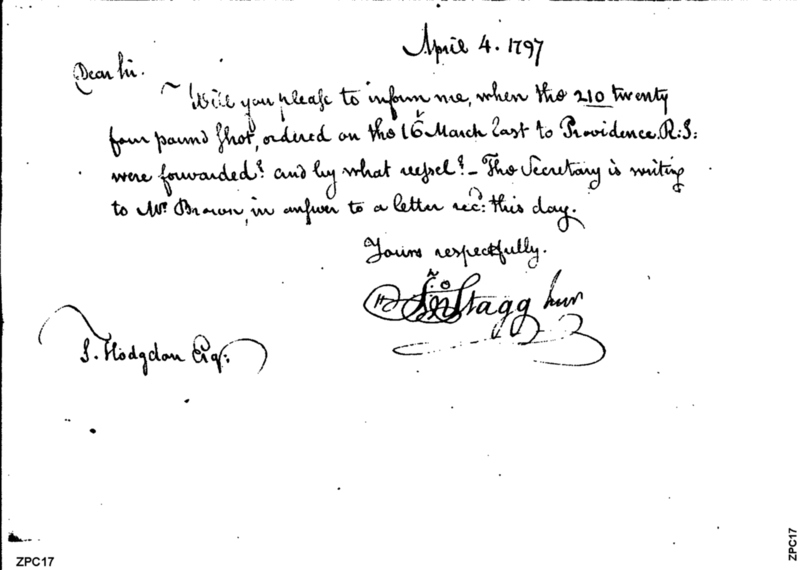 April 4. 1797
Dear Sir.
Will you please to inform me, when the 210 twenty
four pound shot, ordered on the 16 March last to Providence R:I:
were forwarded? and by what vessel? - The Secretary is writing
to Mr. Brown, in answer to a letter rec'd: this day.
Yours respectfully.
Jno Stagg Junr
S. Hodgdon Esq:
ZPC17
ZPC17